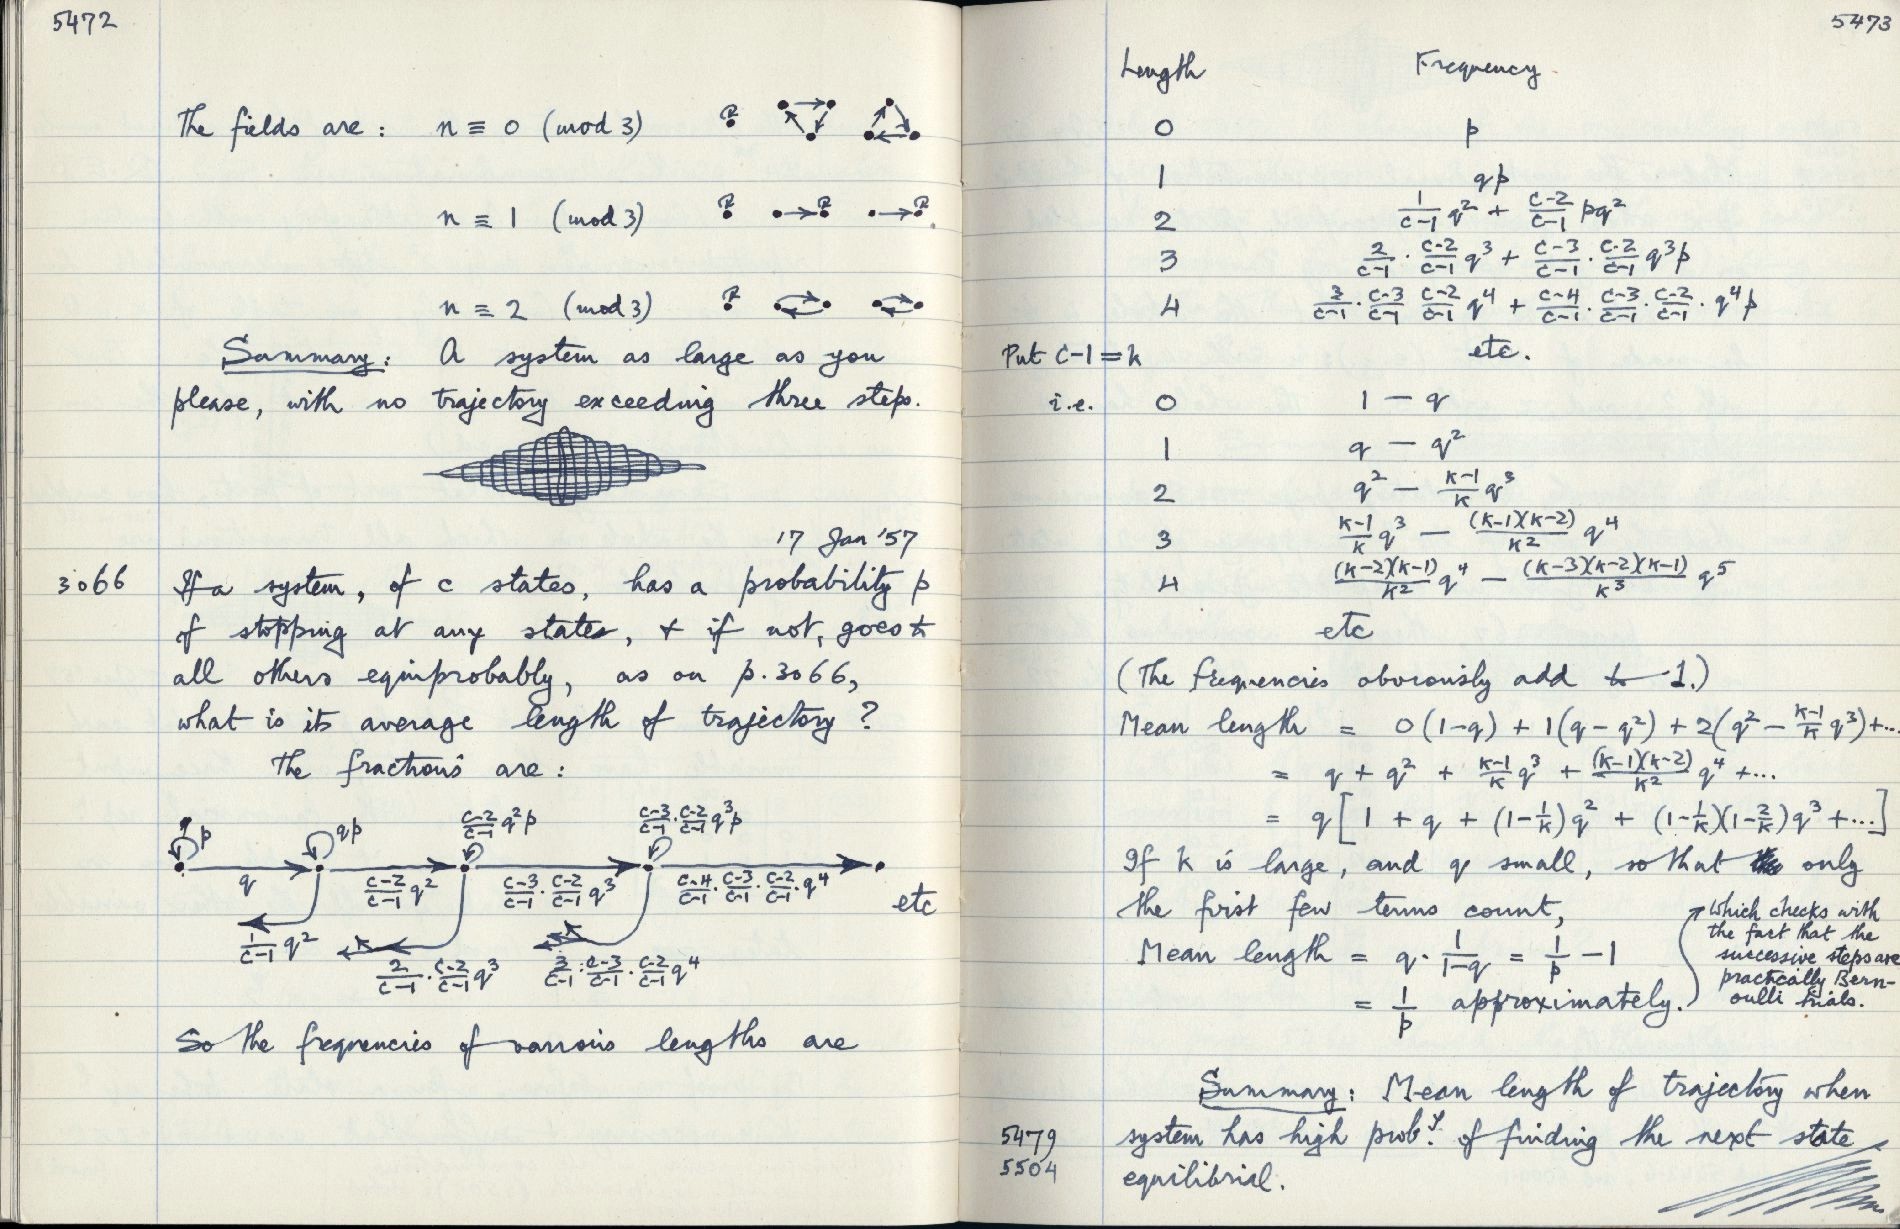 5472
The fields are: n ≡ 0 (mod 3)
n ≡ 1 (mod 3)
n ≡ 2 (mod 3)
Summary: A system as large as you
please, with no trajectory exceeding three steps.
17 Jan '57
3066 If a system, of c states, has a probability p
of stopping at any states, + if not, goes to
all others equiprobably, as on p. 3066,
what is its average length of trajectory?
The fractions are:
p qp c-2/c-1 q²p c-3/c-1 · c-2/c-1 q³p
q c-2/c-1 q² c-3/c-1 · c-2/c-1 q³ c-4/c-1 · c-3/c-1 · c-2/c-1 · q⁴ etc
1/c-1 q² 2/c-1 · c-2/c-1 q³ 3/c-1 · c-3/c-1 · c-2/c-1 q⁴
So the frequencies of various lengths are
5473
Length Frequency
0 p
1 qp
2 1/c-1 q² + c-2/c-1 pq²
3 2/c-1 · c-2/c-1 q³ + c-3/c-1 · c-2/c-1 q³p
4 3/c-1 · c-3/c-1 c-2/c-1 q⁴ + c-4/c-1 · c-3/c-1 · c-2/c-1 · q⁴p
Put c-1 = k etc.
i.e. 0 1 - q
1 q - q²
2 q² - k-1/k q³
3 k-1/k q³ - (k-1)(k-2)/k² q⁴
4 (k-2)(k-1)/k² q⁴ - (k-3)(k-2)(k-1)/k³ q⁵
etc
(The frequencies obviously add to 1.)
Mean length = 0(1-q) + 1(q-q²) + 2(q² - k-1/k q³) + ...
= q + q² + k-1/k q³ + (k-1)(k-2)/k² q⁴ + ...
= q[1 + q + (1-1/k)q² + (1-1/k)(1-2/k)q³ + ...]
If k is large, and q small, so that only
the first few terms count,
Mean length = q · 1/1-q = 1/p - 1
= 1/p approximately.
which checks with
the fact that the
successive steps are
practically Bern-
oulli trials.
Summary: Mean length of trajectory when
5479 system has high prob.y of finding the next state
5504 equilibrial.